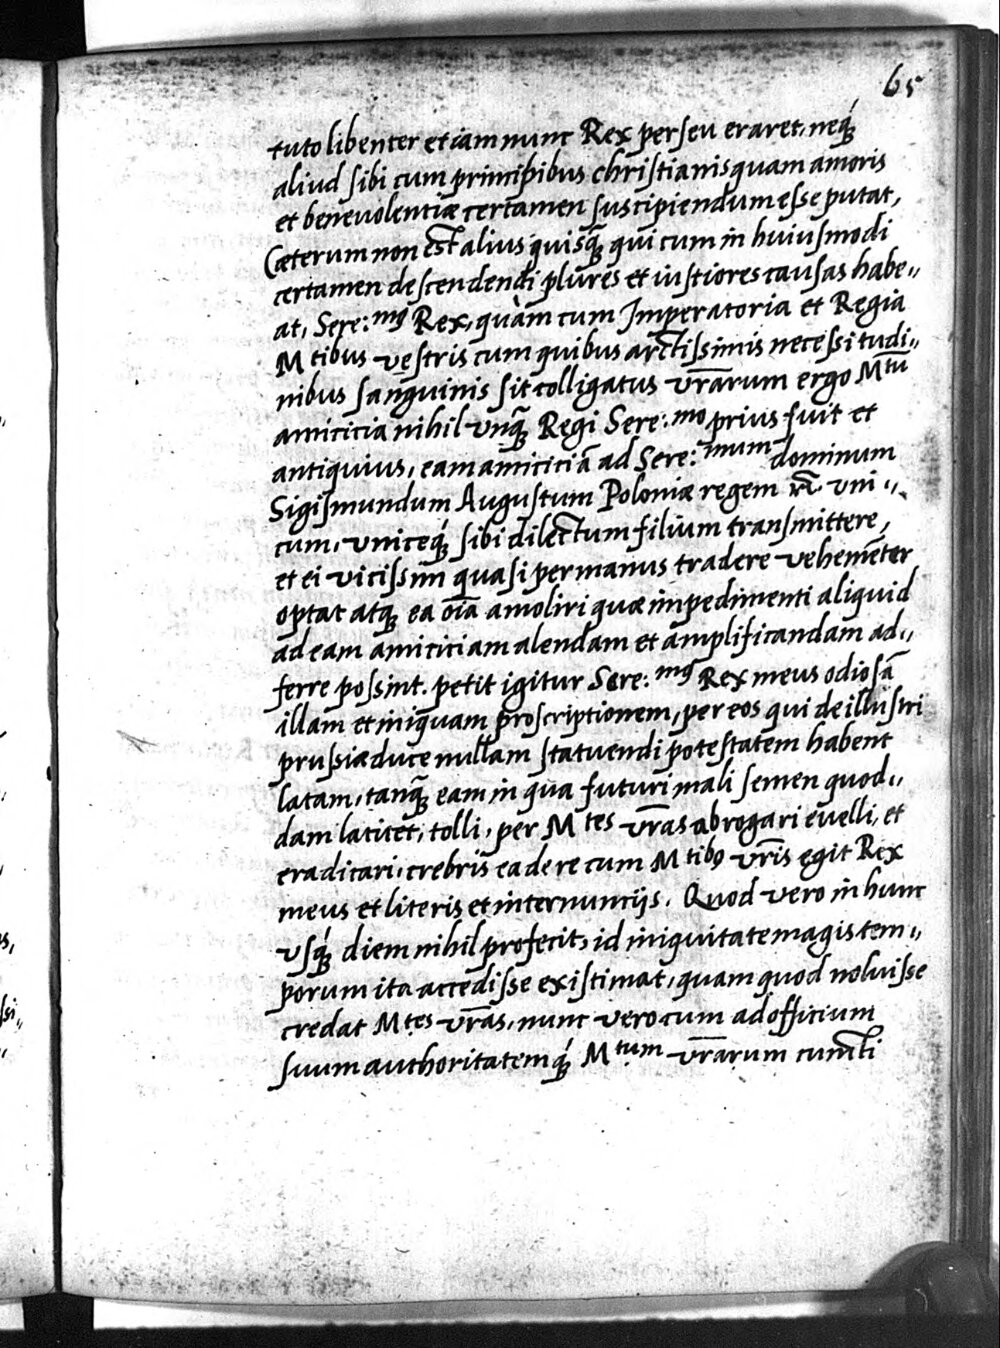 65
tuto libenter etiam nunc Rex perseveraret, neq́ꝫ
aliud sibi cum principibus christianis quam amoris
et benevolentiæ certamen suscipiendum esse putat,
Cæterum non est alius quisq̃ꝫ qui cum in huiusmodi
certamen descendendi plures et iustiores causas habe„
at, Sere:ᵐᵘˢ Rex, quàm cum Imperatoria et Regia
Mtibus vestris cum quibus arctissimis necessitudi„
nibus sanguinis sit colligatus vr̃arum ergo Mtũ
amicicia nihil unq̃ꝫ Regi Sere:ᵐᵒ prius fuit et
antiquius, eam amiciciã ad Sere:ᵐᵘᵐ dominum
Sigismundum Augustum Poloniæ regem uni„
cum, uniceq́ꝫ sibi dilectum filium transmittere,
et ei vicissim quasi per manus tradere vehemẽter
optat atqꝫ ea oĩa amoliri quæ impedimenti aliquid
ad eam amiciciam alendam et amplificandam ad„
ferre possint. petit igitur Sere:ᵐᵘˢ Rex meus odiosã
illam et iniquam proscriptionem, per eos qui de illustri
prussiæ duce nullam statuendi potestatem habent
latam, tanq̃ꝫ eam in qua futuri mali semen quod„
dam latitet, tolli, per Mtes vr̃as abrogari evelli, et
eradicari, crebris ea de re cum Mtibꝰ vr̃is egit Rex
meus et literis et internuncijs. Quod vero in hunc
usq́ꝫ diem nihil profecit, id iniquitate magis tem„
porum ita accedisse existimat, quam quod noluisse
credat Mtes vr̃as, nunc vero cum ad officium
suum authoritatemq́ꝫ Mtum vr̃arum cuncti